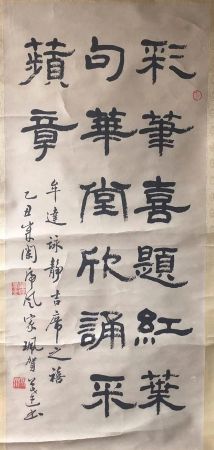 彩筆喜題紅葉
句華堂欣誦采
蘋章
牟達詠靜吉席之禧
乙丑風家珮賀